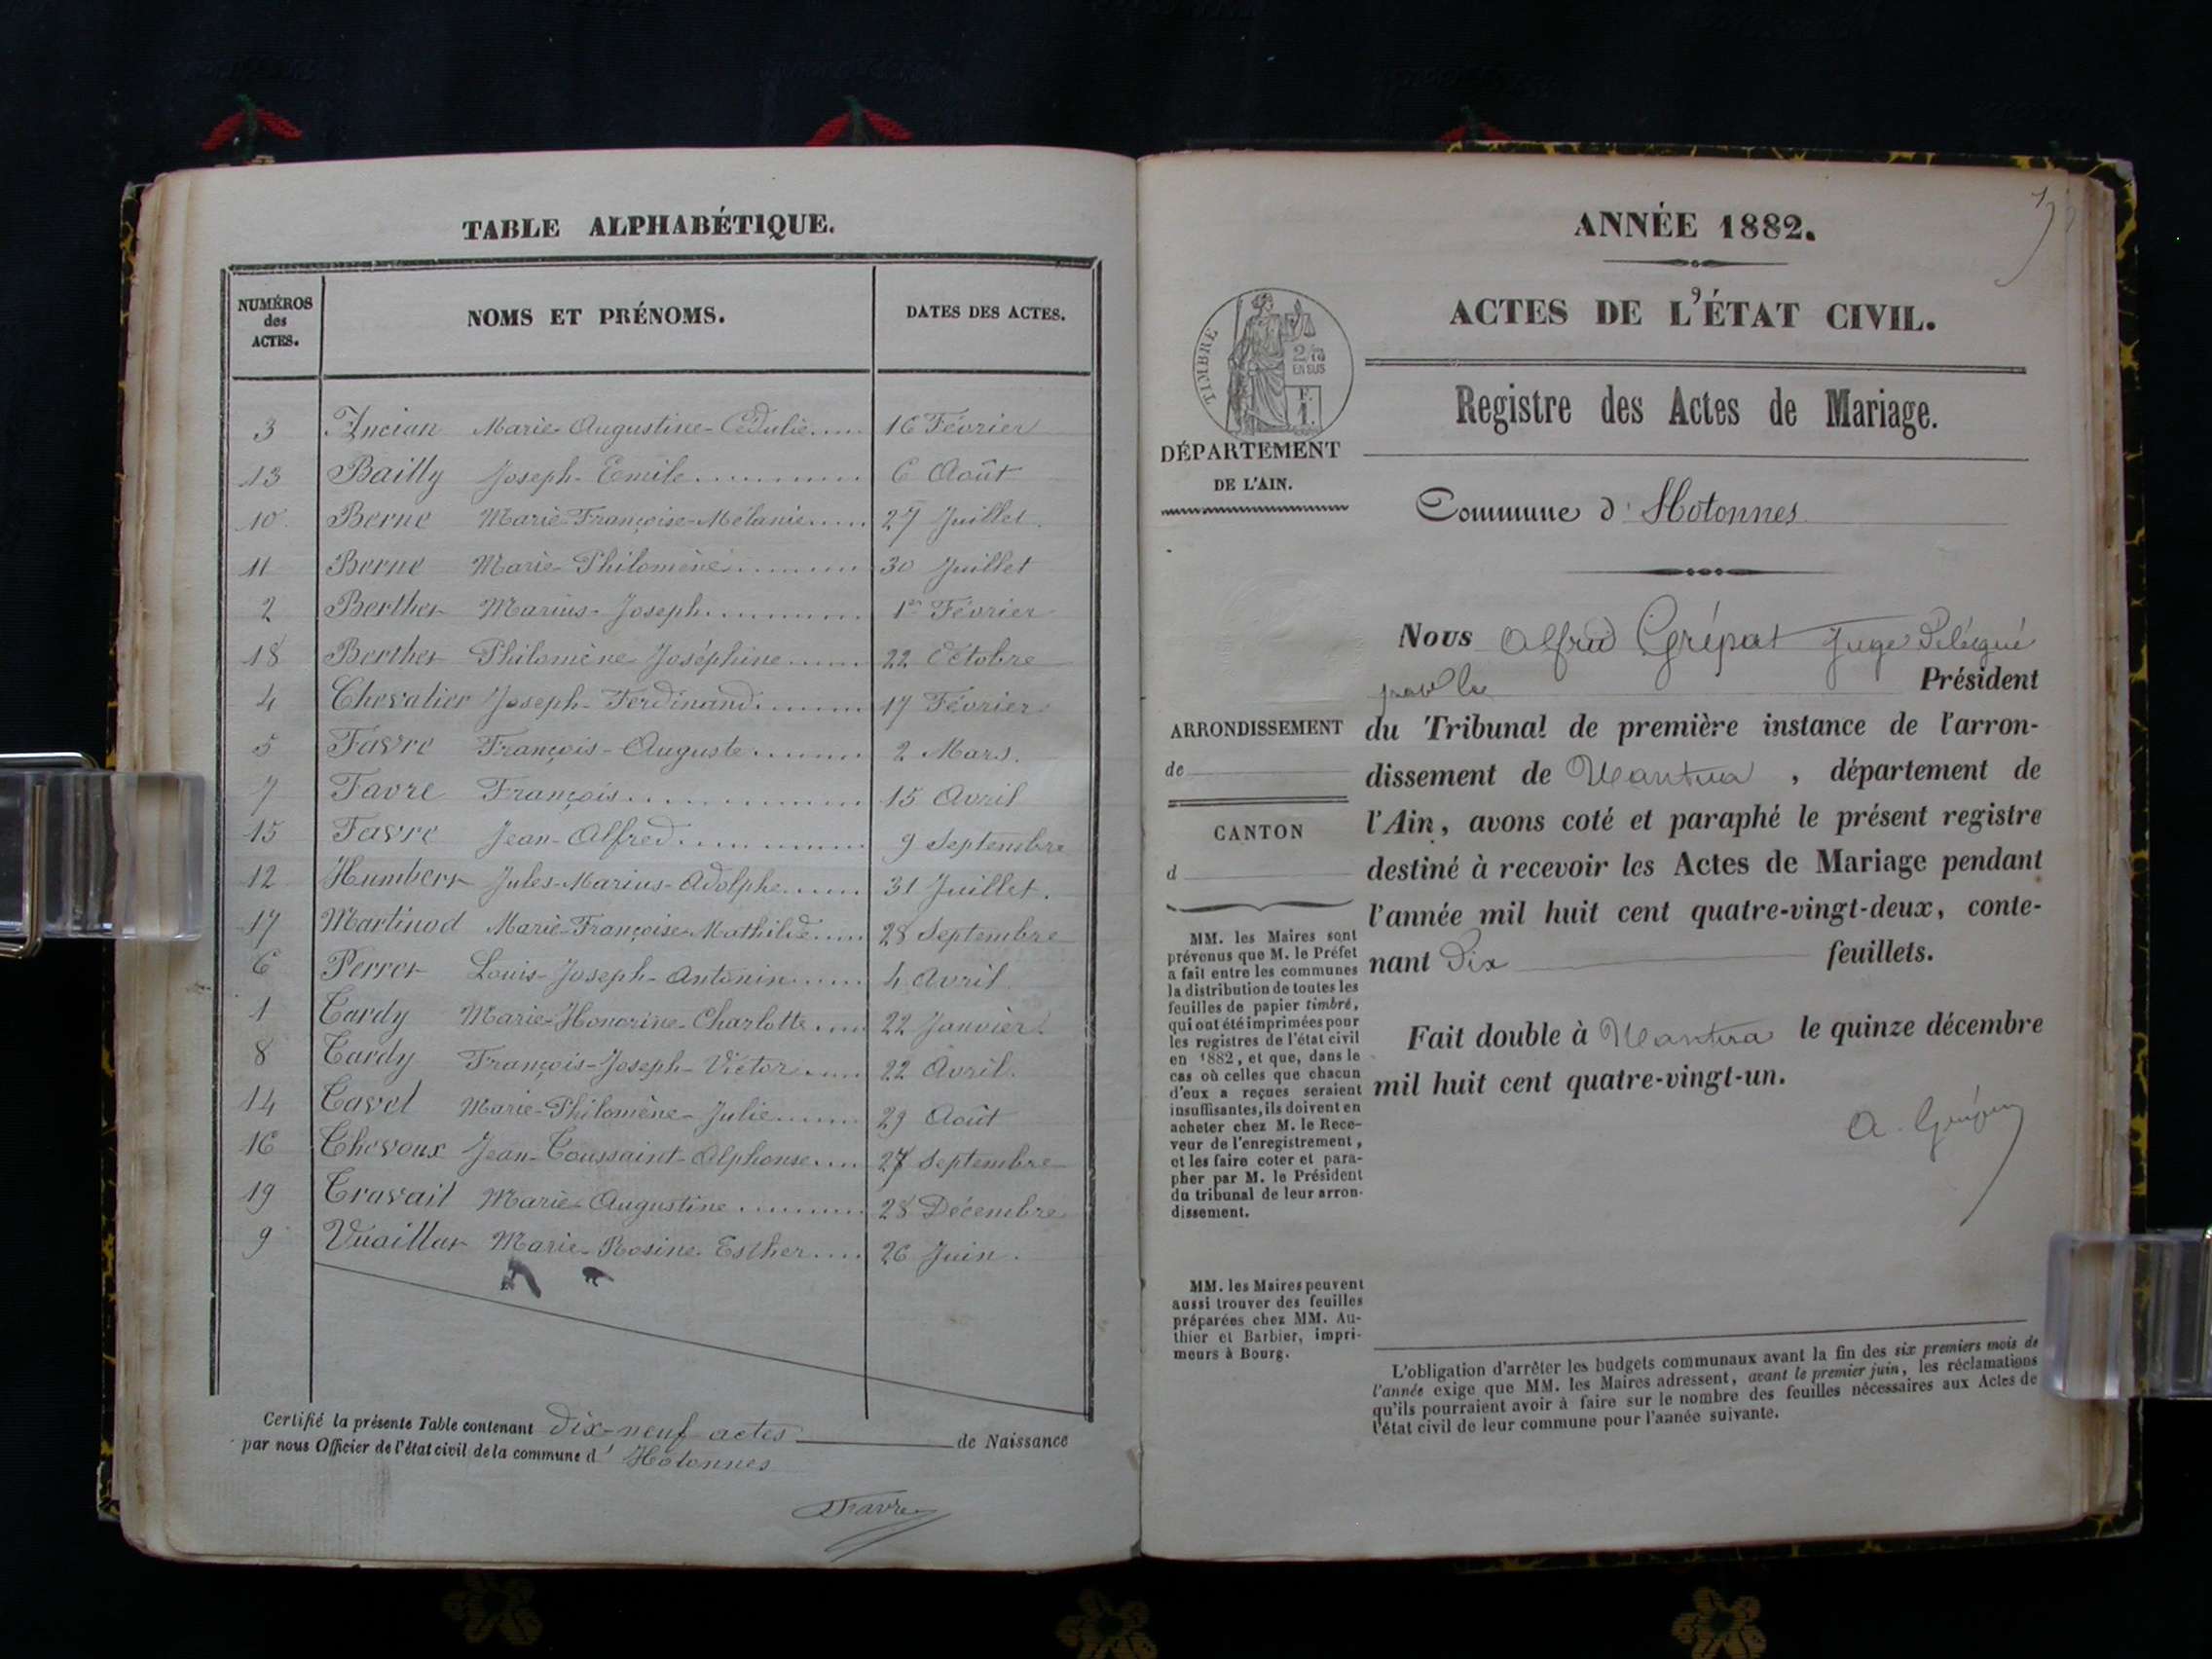 TABLE ALPHABÉTIQUE.
NUMÉROS
des
ACTES.
NOMS ET PRÉNOMS.
DATES DES ACTES.
3 Ancian Marie-Augustine-Cédulie..... 16 Février
13 Bailly Joseph-Emile........... 6 Août
10 Berne Marie-Françoise-Mélanie..... 27 Juillet
11 Berne Marie-Philomène......... 30 Juillet
2 Berthet Marius-Joseph.......... 1er Février
18 Berthet Philomène-Joséphine..... 22 Octobre
4 Chevalier Joseph-Ferdinand....... 17 Février
5 Favre François-Auguste....... 2 Mars.
7 Favre François............. 15 Avril
15 Favre Jean-Alfred........... 9 Septembre
12 Humbert Jules-Marius-Adolphe...... 31 Juillet.
17 Martinod Marie-Françoise-Mathilde..... 28 Septembre
6 Perret Louis-Joseph-Antonin...... 4 Avril
1 Tardy Marie-Honorine-Charlotte.... 22 Janvier.
8 Tardy François-Joseph-Victor.... 22 Avril.
14 Tavel Marie-Philomène-Julie...... 29 Août
16 Thevoux Jean-Toussaint-Alphonse.... 27 Septembre
19 Travail Marie-Augustine........ 28 Décembre
9 Vuaillat Marie-Rosine Esther.... 26 Juin.
Certifié la présente Table contenant dix-neuf actes de Naissance
par nous Officier de l'état civil de la commune d' Hotonnes
Favre
ANNÉE 1882.
ACTES DE L'ÉTAT CIVIL.
TIMBRE
2/10
EN SUS
F.
1.
Registre des Actes de Mariage.
DÉPARTEMENT
DE L'AIN.
Commune d' Hotonnes
Nous Alfred Grépat Juge Délégué
par le Président
du Tribunal de première instance de l'arron-
dissement de Nantua, département de
l'Ain, avons coté et paraphé le présent registre
destiné à recevoir les Actes de Mariage pendant
l'année mil huit cent quatre-vingt-deux, conte-
nant Dix feuillets.
Fait double à Nantua le quinze décembre
mil huit cent quatre-vingt-un.
ARRONDISSEMENT
de
CANTON
d
MM. les Maires sont
prévenus que M. le Préfet
a fait entre les communes
la distribution de toutes les
feuilles de papier timbré,
qui ont été imprimées pour
les registres de l'état civil
en 1882, et que, dans le
cas où celles que chacun
d'eux a reçues seraient
insuffisantes, ils doivent en
acheter chez M. le Rece-
veur de l'enregistrement,
et les faire coter et para-
pher par M. le Président
du tribunal de leur arron-
dissement.
MM. les Maires peuvent
aussi trouver des feuilles
préparées chez MM. Au-
thier et Barbier, impri-
meurs à Bourg.
L'obligation d'arrêter les budgets communaux avant la fin des six premiers mois de
l'année exige que MM. les Maires adressent, avant le premier juin, les réclamations
qu'ils pourraient avoir à faire sur le nombre des feuilles nécessaires aux Actes de
l'état civil de leur commune pour l'année suivante.